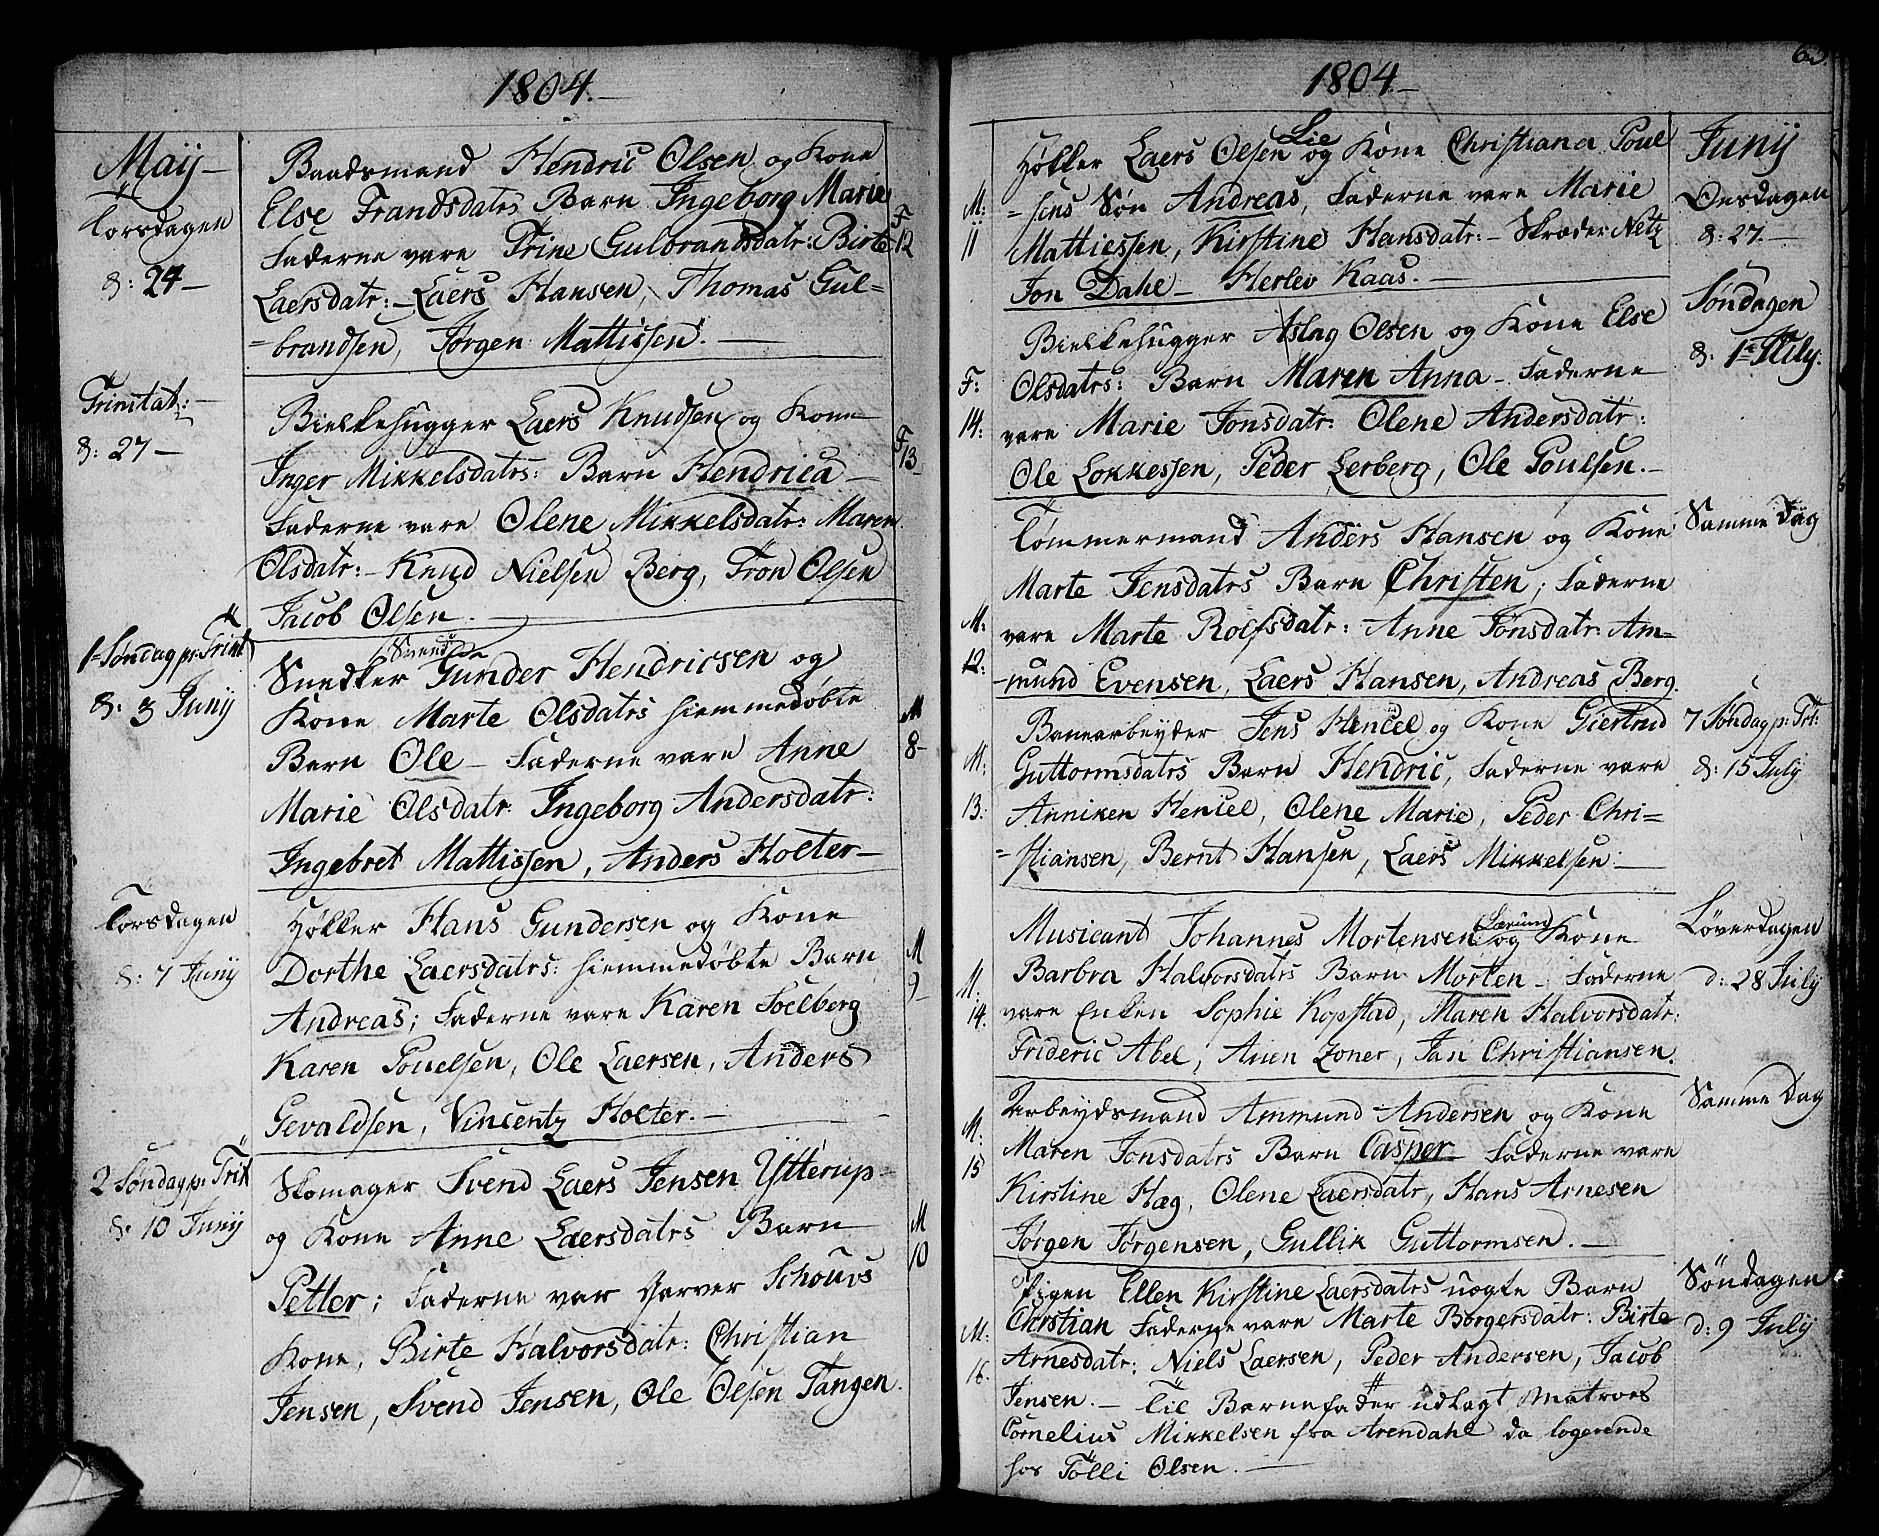 1804.
Maij
Torsdagen
d: 24
Baadsmand Hendric Olsen og Kone
Else Frandsdatrs Barn Ingeborg Marie
F
12
Faderne vare Trine Gulbrandsdatr: Birte
Laersdatr: Laers Hansen, Thomas Gul=
=brandsen, Jørgen Mattissen.
Trinitat:
d: 27
Bielkehugger Laers Knudsen og Kone
F
13
Inger Mikkelsdatrs: Barn Hendrica
Faderne vare Olene Mikkelsdatr: Maren
Olsdatr: Knud Nielsen Berg, Tron Olsen
Jacob Olsen.
1= Søndag p: Trint
d: 3 Junij
Snedker Gunder Hendricsen og
Kone Marte Olsdatrs hiemmedøbte
M
8
Barn Ole Faderne vare Anne
Marie Olsdatr Ingeborg Andersdatr:
Ingebret Mattissen, Anders Holter
Torsdagen
d: 7 Junij
Høkker Hans Gundersen og Kone
Dorthe Laersdatrs: hiemmedøbte Barn
M
9
Andreas; Faderne vare Karen Solberg
Karen Pouelsen, Ole Laersen, Anders
Gevaldsen, Vincentz Holter.
2 Søndag p: Trit
d: 10 Junij
Skomager Svend Laers Jensen Ytterup
M
10
og Kone Anne Laersdatrs Barn
Petter; Faderne var Garver Schouvs
Kone, Birte Halvorsdatr: Christian
Jensen, Svend Jensen, Ole Olsen Tangen.
1804.
63.
Junij
Onsdagen
d: 27.
M:
11
Høkker Laers Olsen Lie og Kone Christiana Poul
=sens Søn Andreas, Faderne vare Marie
Mattiessen, Kirstine Hansdatr: Skræder Netz
Jon Dahl Herlev Kaas.
Søndagen
d: 1= July:
F:
14:
Bielkehugger Aslag Olsen og Kone Else
Olsdatrs: Barn Maren Anna Faderne
vare Marie Jonsdatr: Olene Andersdatr:
Ole Lokkessen, Peder Lerberg, Ole Poulsen.
Samme Dag
M:
12:
Tømmermand Anders Hansen og Kone
Marte Jensdatrs Barn Christen; Faderne
vare Marte Rolfsdatr: Anne Jønsdatr: Am=
=mund Evensen, Laers Hansen, Andreas Berg.
7 Søndag p: Trt:
d: 15 Julij
M:
13:
Banearbeyder Jens Hencel og Kone Giertrud
Guttormsdatrs Barn Hendric, Faderne vare
Anniken Hencel, Olene Marie, Peder Chri=
=stiansen, Bernt Hansen, Laers Mikkelsen.
Løverdagen
d: 28 Julij
M:
14.
Musicant Johannes Mortensen og Kone
Barbra Halvorsdatrs Barn Morten Faderne
vare Enken Sophie Kopstad, Maren Halvorsdatr:
Frideric Abel, Anen Zoner, Jan Christiansen.
Samme Dag
M:
15
Arbeydsmand Ammund Andersen og Kone
Maren Jonsdatrs Barn Casper Faderne vare
Kirstine Hæg, Olene Laersdatr, Hans Arnesen
Jørgen Jørgensen, Gullik Guttormsen.
Søndagen
d: 9 Julij
M:
16.
Pigen Ellen Kirstine Laersdatrs uægte Barn
Christian Faderne vare Marte Børgersdatr: Birte
Arnesdatr: Niels Laersen, Peder Andersen, Jacob
Jensen. Til Barnefader udlagt Matros
Cornelius Mikkelsen fra Arendahl da logerende
hos Tølli Olsen.